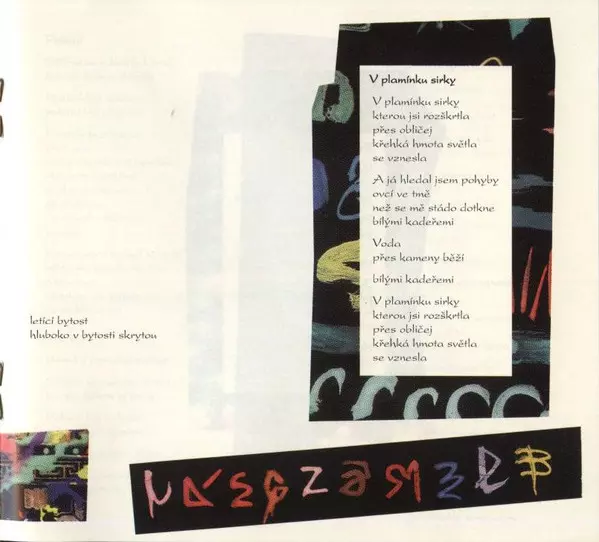 V plamínku sirky
V plamínku sirky
kterou jsi rozškrtla
přes obličej
křehká hmota světla
se vznesla
A já hledal jsem pohyby
ovcí ve tmě
než se mě stádo dotkne
bílými kadeřemi
Voda
přes kameny běží
bílými kadeřemi
V plamínku sirky
kterou jsi rozškrtla
přes obličej
křehká hmota světla
se vznesla
letící bytost
hluboko v bytosti skrytou